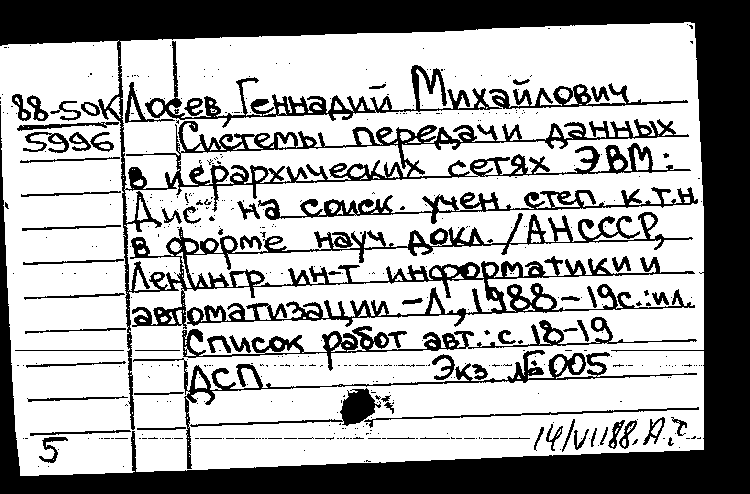 88-50К Лосев, Геннадий Михайлович.
5996 Системы передачи данных
в иерархических сетях ЭВМ:
Дис. на соиск. учен. степ. к.т.н.
в форме науч. докл. /АНСССР,
Ленингр. ин-т информатики и
автоматизации. -Л., 1988-19с.:ил.
Список работ авт.: с. 18-19.
ДСП. Экз. № 005
5 14/VI188.